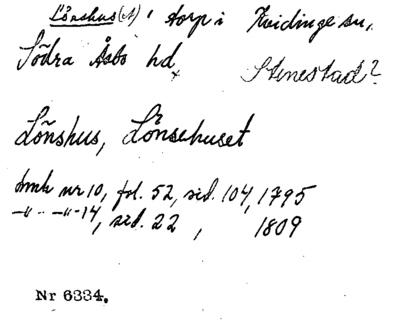 Lönshus (N), torp i Kvidinge sn,
Södra Åsbo hd,
Stenestad?
Lönshus, Lönsehuset
nr 10, fol. 52, sid. 104, 1795
–"– –"– 14, sid. 22, 1809
Nr 6334.